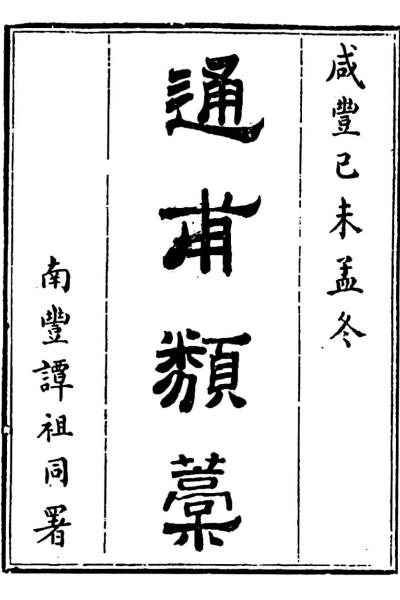 咸豐己未孟冬
通甫類藁
南豐譚祖同署